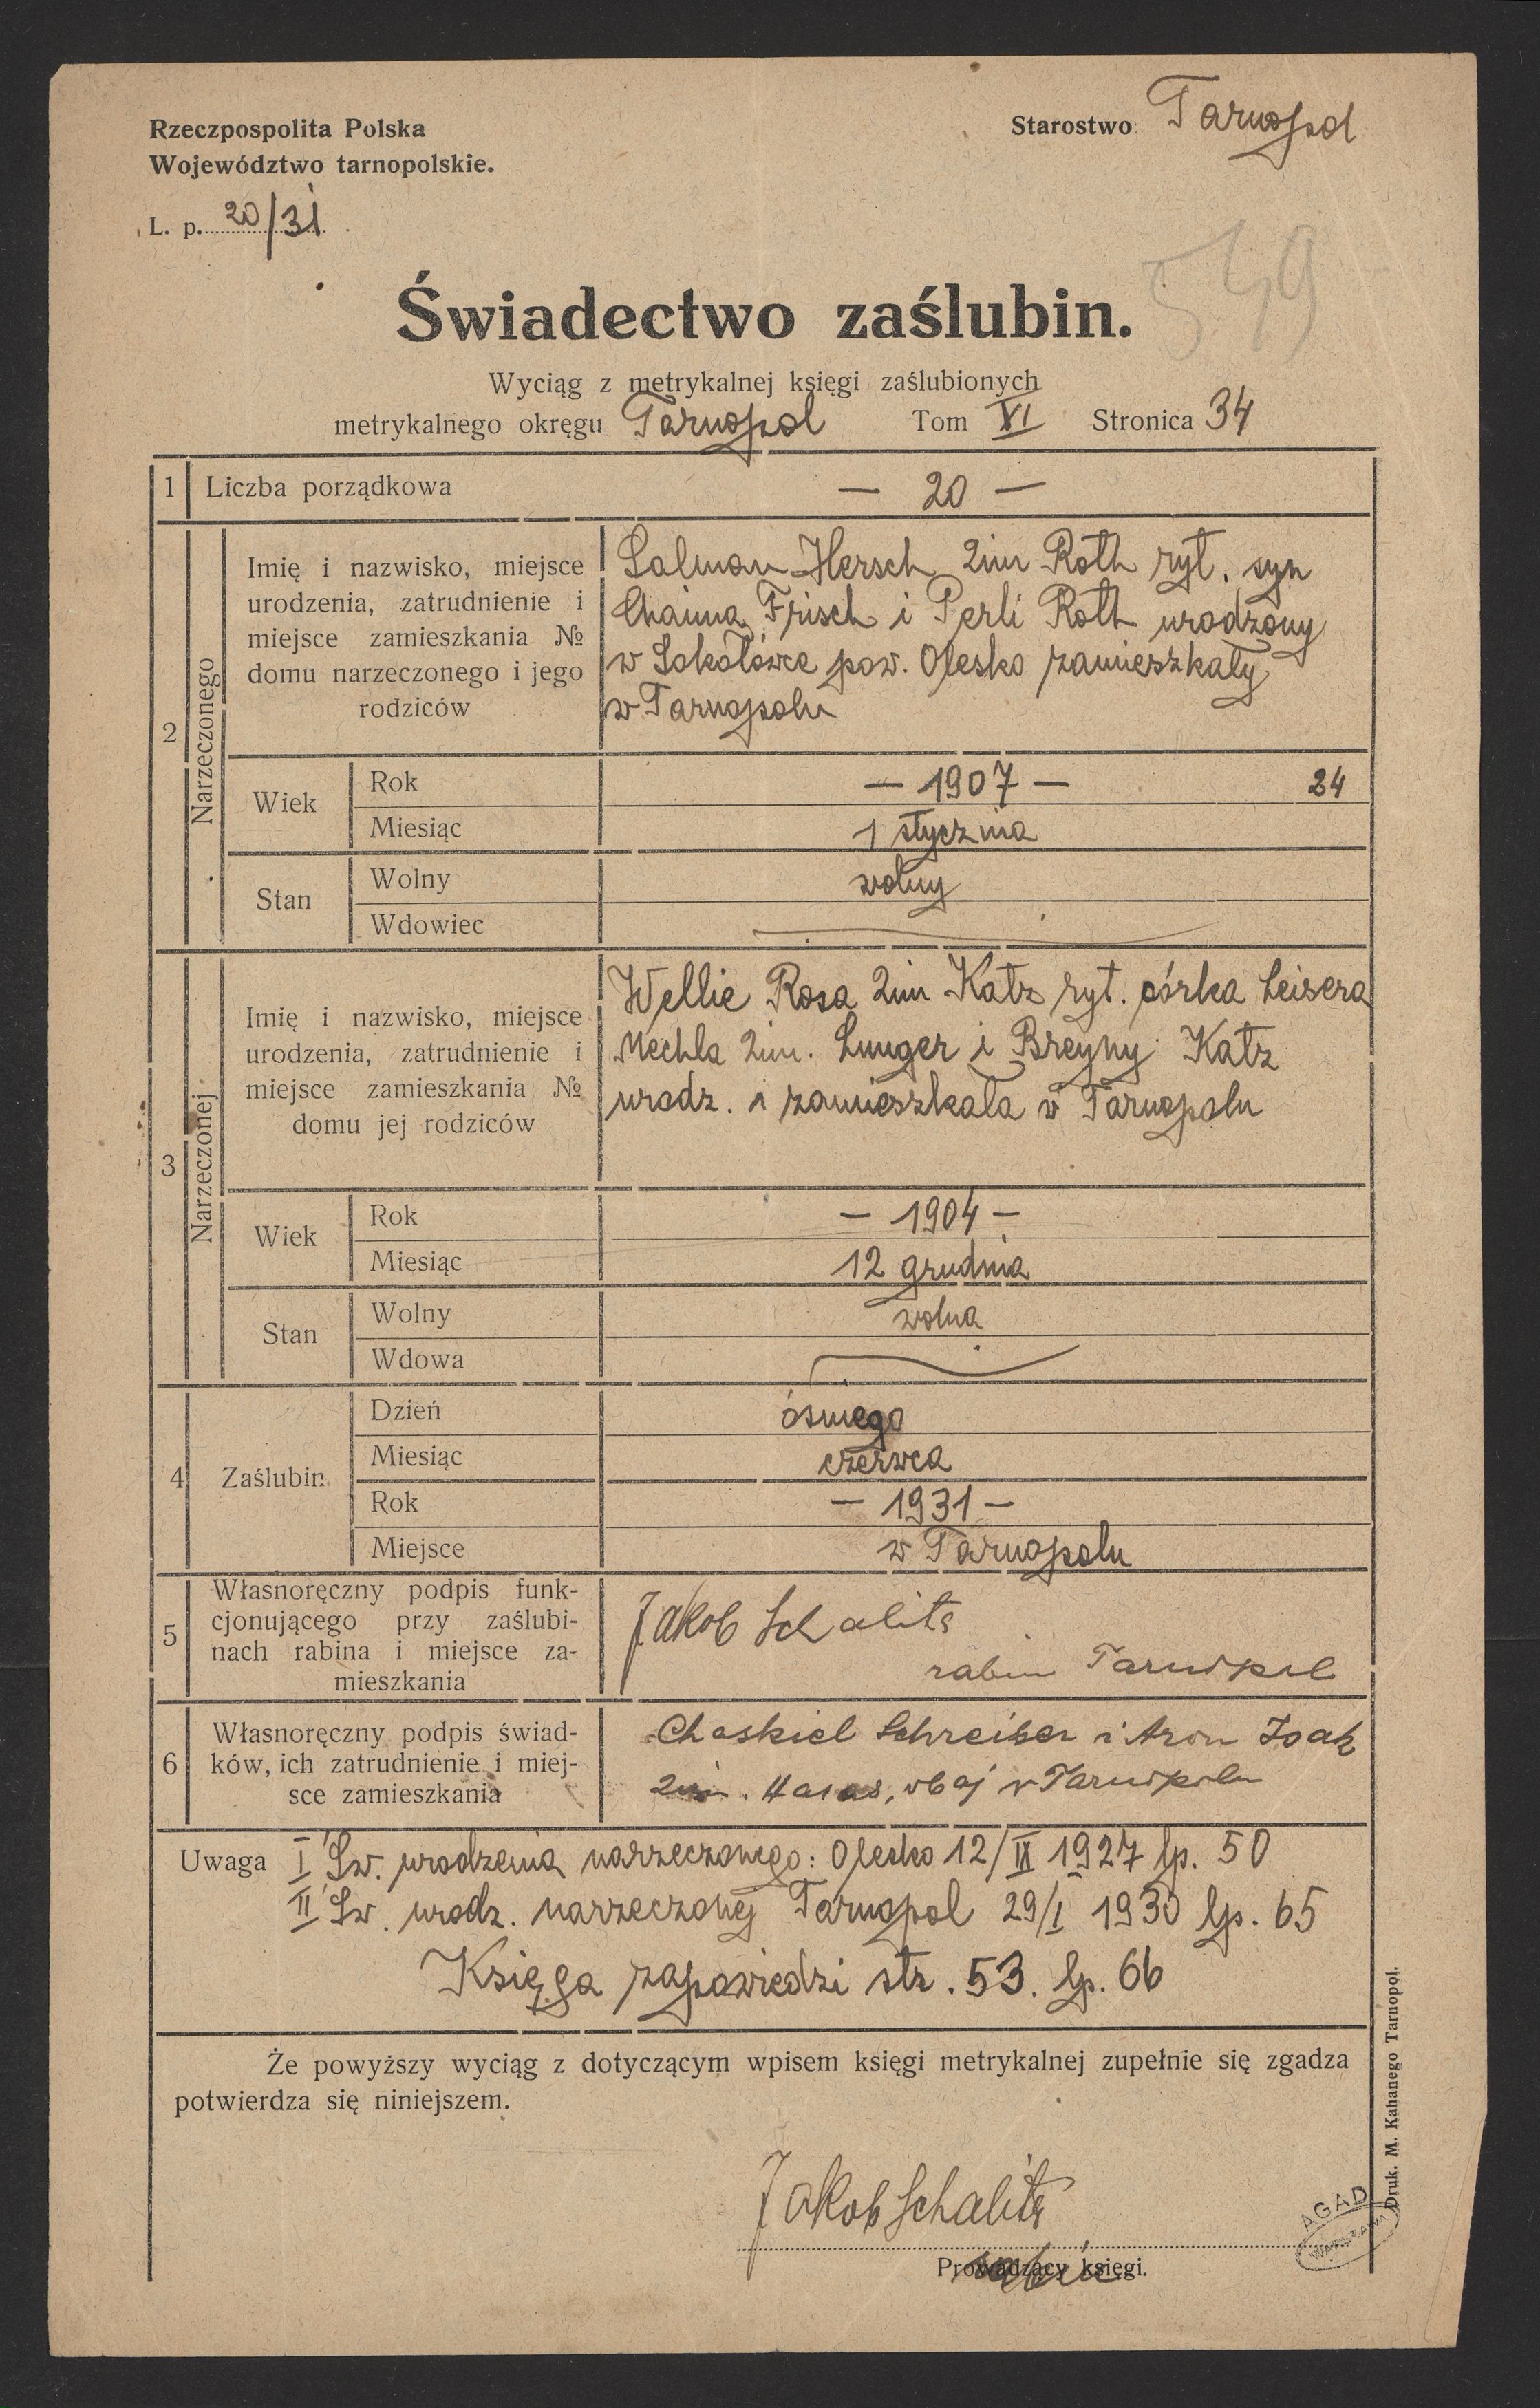 Rzeczpospolita Polska
Województwo tarnopolskie.
Starostwo Tarnopol
L. p. 20/31
549
Świadectwo zaślubin.
Wyciąg z metrykalnej księgi zaślubionych
metrykalnego okręgu Tarnopol Tom VI Stronica 34
1 Liczba porządkowa — 20 —
2 Narzeczonego
Imię i nazwisko, miejsce
urodzenia, zatrudnienie i
miejsce zamieszkania №
domu narzeczonego i jego
rodziców
Salman Hersch 2im Roth ryt. syn
Chaima Frisch i Perli Roth urodzony
w Sokołówce pow. Olesko zamieszkały
w Tarnopolu
Wiek Rok — 1907 — 24
Miesiąc 1 stycznia
Stan Wolny wolny
Wdowiec
3 Narzeczonej
Imię i nazwisko, miejsce
urodzenia, zatrudnienie i
miejsce zamieszkania №
domu jej rodziców
Wellie Rosa 2im Katz ryt. córka Leisera
Mechla 2im. Lunger i Breyny Katz
urodz. i zamieszkała w Tarnopolu
Wiek Rok — 1904 —
Miesiąc 12 grudnia
Stan Wolny wolna
Wdowa
4 Zaślubin
Dzień ósmego
Miesiąc czerwca
Rok — 1931 —
Miejsce w Tarnopolu
5 Własnoręczny podpis funk-
cjonującego przy zaślubi-
nach rabina i miejsce za-
mieszkania
Jakob Schalits
rabin Tarnopol
6 Własnoręczny podpis świad-
ków, ich zatrudnienie i miej-
sce zamieszkania
Chaskiel Schreiber i Aron Izak
2im. Haras, obaj w Tarnopolu
Uwaga I Św. urodzenia narzeczonego: Olesko 12/IX 1927 lp. 50
II Św. urodz. narzeczonej Tarnopol 29/I 1930 lp. 65
Księga zapowiedzi str. 53. lp. 66
Że powyższy wyciąg z dotyczącym wpisem księgi metrykalnej zupełnie się zgadza
potwierdza się niniejszem.
Jakob Schalits
rabin
Prowadzący księgi.
Druk. M. Kahanego Tarnopol.
AGAD
WARSZAWA